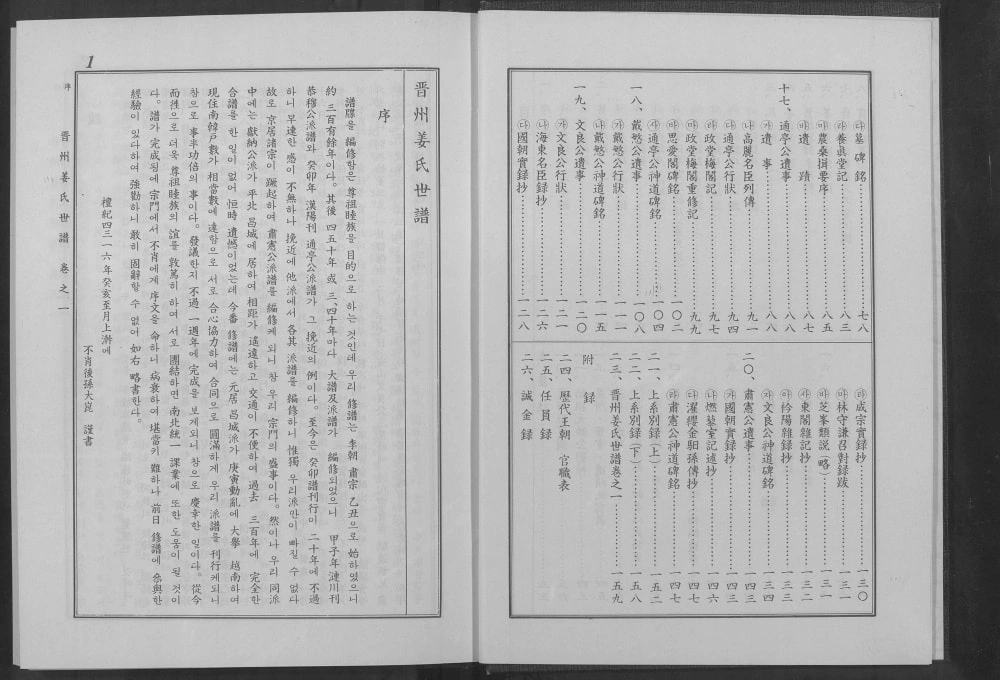 ㉰墓碑銘……七八
㉱養眞堂記……八三
㉲農桑揖要序……八五
㉳遺蹟……八七
十七、通亭公遺事……八八
㉮遺事……八八
㉯高麗名臣列傳……九一
㉰通亭公行狀……九四
㉱政堂梅閣記……九七
㉲政堂梅閣重修記……九九
㉳思養閣碑銘……一〇二
㉴通亭公神道碑銘……一〇四
十八、戴慜公遺事……一〇八
㉮戴慜公行狀……一一一
㉯戴慜公神道碑銘……一一五
十九、文良公遺事……一二〇
㉮文良公行狀……一二一
㉯海東名臣録抄……一二六
㉰國朝實録抄……一二八
㉱成宗實録抄……一三〇
㉲林守謙召對録跋……一三一
㉳芝峯類説(略)……一三一
㉴東閣雜記抄……一三二
㉵衿陽雜録抄……一三三
文良公神道碑銘……一三四
二〇、肅憲公遺事……一四三
㉮國朝實録抄……一四三
㉯燃藜室記述抄……一四六
㉰濯纓金馹孫傳抄……一四七
㉱肅憲公神道碑銘……一四七
二一、上系別録(上)……一五二
二二、上系別録(下)……一五八
二三、晋州姜氏世譜卷之一……一五九
附録
二四、歷代王朝 官職表
二五、任員録
二六、誠金録
晋州姜氏世譜
序
譜牒을 編修함은 尊祖睦族을 目的으로 하는 것인데 우리 修譜는 李朝 肅宗 乙丑으로 始하였으니
約 三百有餘年이다。其後 四五十年 或 三、四十年마다 大譜及派譜가 編修되었으니 甲子年漣川刊
恭穆公派譜와 癸卯年 漢陽刊 通亭公派譜가 그 挽近의 例이다。至今은 癸卯譜刊行이 二十年에 不過
하니 早速한 感이 不無하나 挽近에 他派에서 各其 派譜를 編修하니 惟獨 우리派만이 빠질 수 없다
故로 京居諸宗이 蹶起하여 肅憲公派譜를 編修케 되니 참 우리 宗門의 盛事이다。然이나 우리 同派
中에는 獻納公派가 平北 昌城에 居하여 相距가 遙遠하고 交通이 不便하여 過去 三百年에 完全한
合譜를 한 일이 없어 恒時 遺憾이었는데 今番 修譜에는 元居 昌城派가 庚寅動亂에 大擧 越南하여
現住南韓戶數가 相當數에 達함으로 서로 合心協力하여 合同으로 圓滿하게 우리 派譜를 刊行케되니
참으로 事半功倍의 事이다。發議한지 不過 一週年에 完成을 보게되니 참으로 慶幸한 일이다。從今
而徃으로 더욱 尊祖睦族의 誼를 敦篤히 하여 서로 團結하면 南北統一 課業에 또한 도움이 될 것이
다。譜가 完成됨에 宗門에서 不肖에게 序文을 命하니 病衰하여 堪當키 難하나 前日 修譜에 參與한
經驗이 있다하여 強勸하니 敢히 固辭할 수 없어 如右 略書한다。
檀紀四三一六年癸亥至月上澣에
不肖後孫大崑 謹書
序 晋州姜氏世譜 卷之一
1